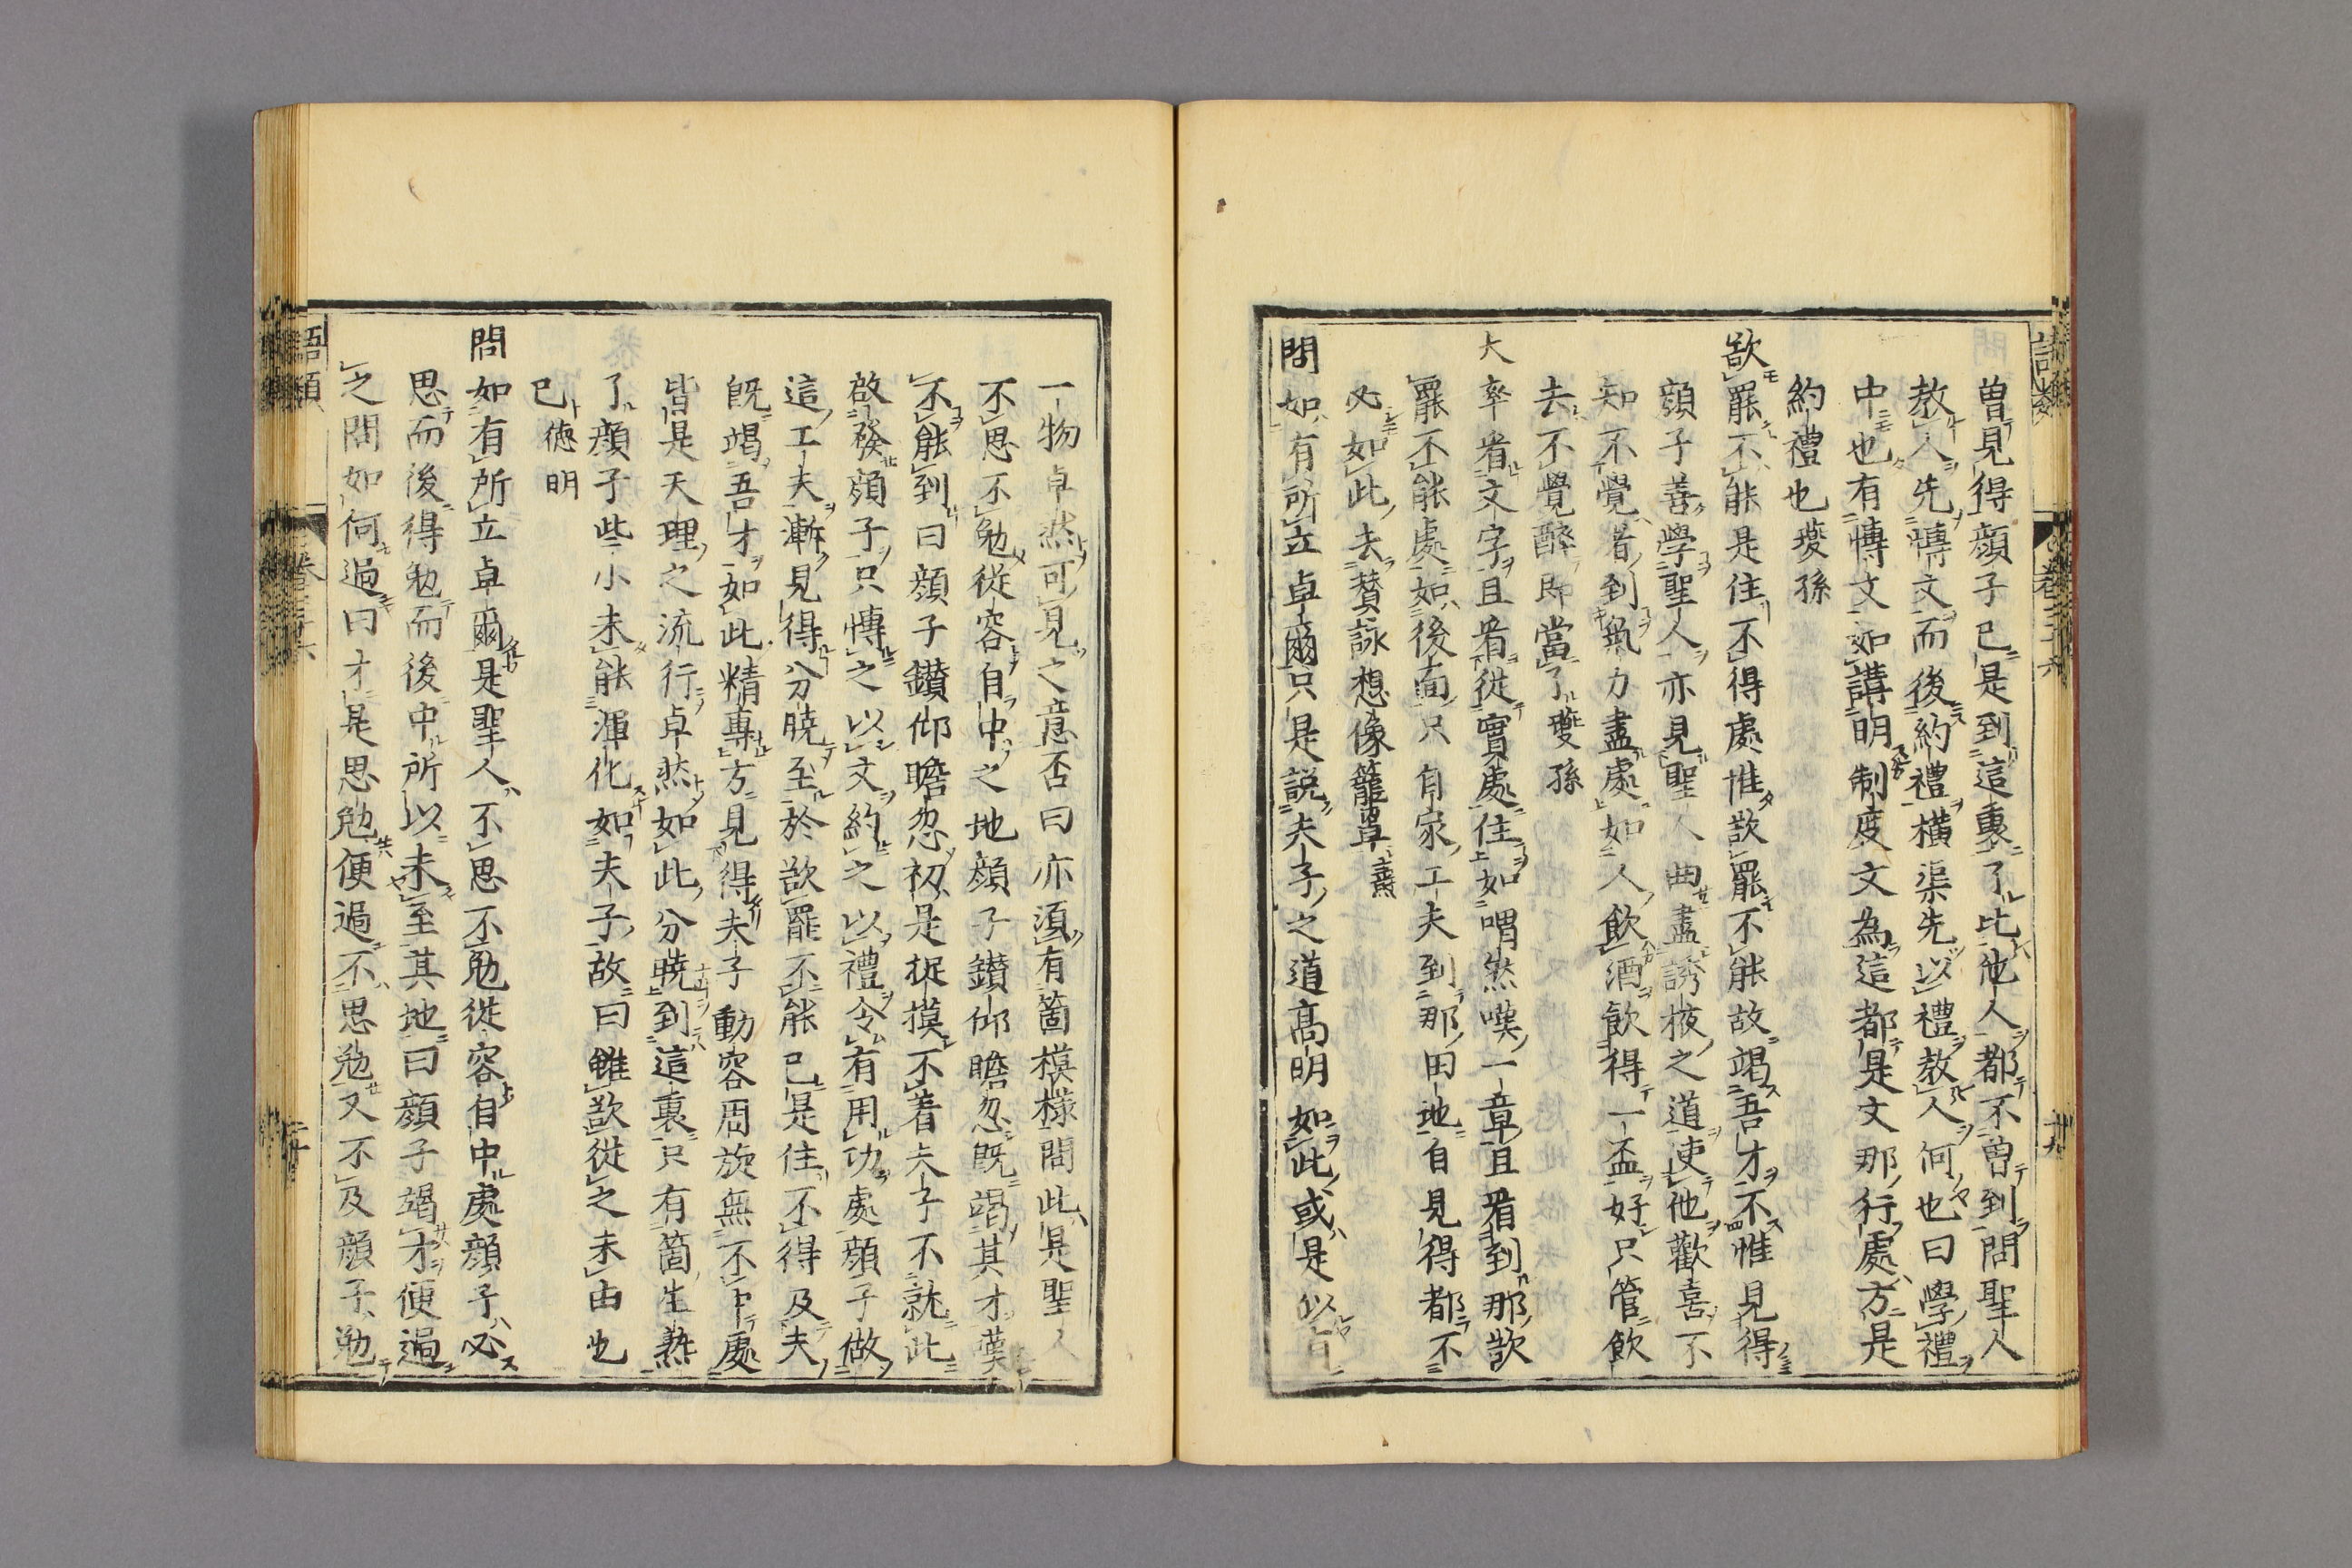 曽見得顔子已是到這裏了比他人都不曽到問聖人
教人先博文而後約禮横渠先以禮教人何也曰學禮
中也有博文如講明制度文為這都是文那行處方是
約禮也夔孫
欲罷不能是住不得處惟欲罷不能故竭吾才不惟見得
顔子善學聖人亦見聖人曲盡誘掖之道使他歡喜不
知不覺者到氣力盡處如人飲酒飲得一盃好只管飲
去不覺醉即當了夔孫
大率看文字且看從實處住如喟然嘆一章且看到那欲
罷不能處如後面只自家工夫到那田地自見得都不
必如此去賛詠想像籠罩燾
問如有所立卓爾只是説夫子之道高明如此或是似有
一物卓然可見之意否曰亦須有箇模樣問此是聖人
不思不勉從容自中之地顔子鑽仰瞻忽既竭其才嘆
不能到曰顔子鑽仰瞻忽初是捉摸不着夫子不就此
啟發顔子只博之以文約之以禮令有用功處顔子做
這工夫漸見得分曉至於欲罷不能已是住不得及夫
既竭吾才如此精專方見得夫子動容周旋無不中處
皆是天理之流行卓然如此分曉到這裏只有箇生熟
了顔子些小未能渾化如夫子故曰雖欲從之未由也
已徳明
問如有所立卓爾是聖人不思不勉從容自中處顔子必
思而後得勉而後中所以未至其地曰顔子竭才便過
之問如何過曰才是思勉便過不思勉又不及顔子勉
語類
卷三十六
二十